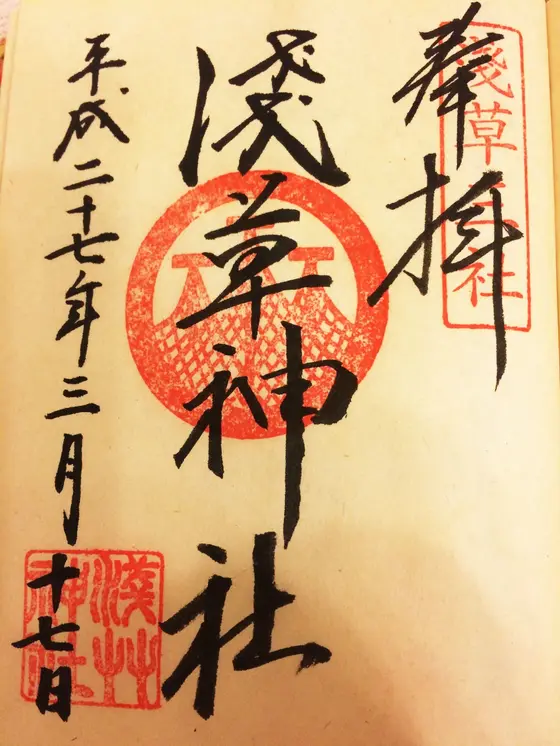 奉拝
淺草三社
淺草神社
平成二十七年三月十七日
淺草
神社